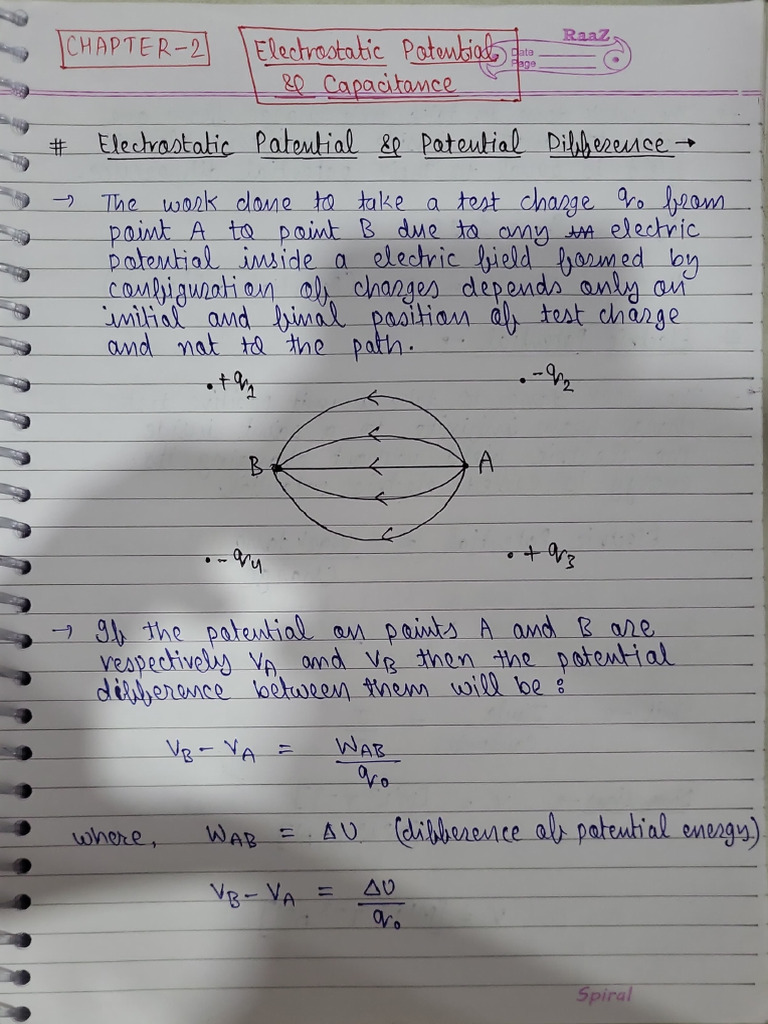 CHAPTER-2
Electrostatic Potential
& Capacitance
RaaZ
Date
Page
# Electrostatic Potential & Potential Difference →
→ The work done to take a test charge q₀ from
point A to point B due to any electric
potential inside a electric field formed by
configuration of charges depends only on
initial and final position of test charge
and not to the path.
+q₁ -q₂
B A
-q₄ +q₃
→ If the potential on points A and B are
respectively VA and VB then the potential
difference between them will be :
VB - VA = WAB / q₀
where, WAB = ΔU (difference of potential energy)
VB - VA = ΔU / q₀
Spiral